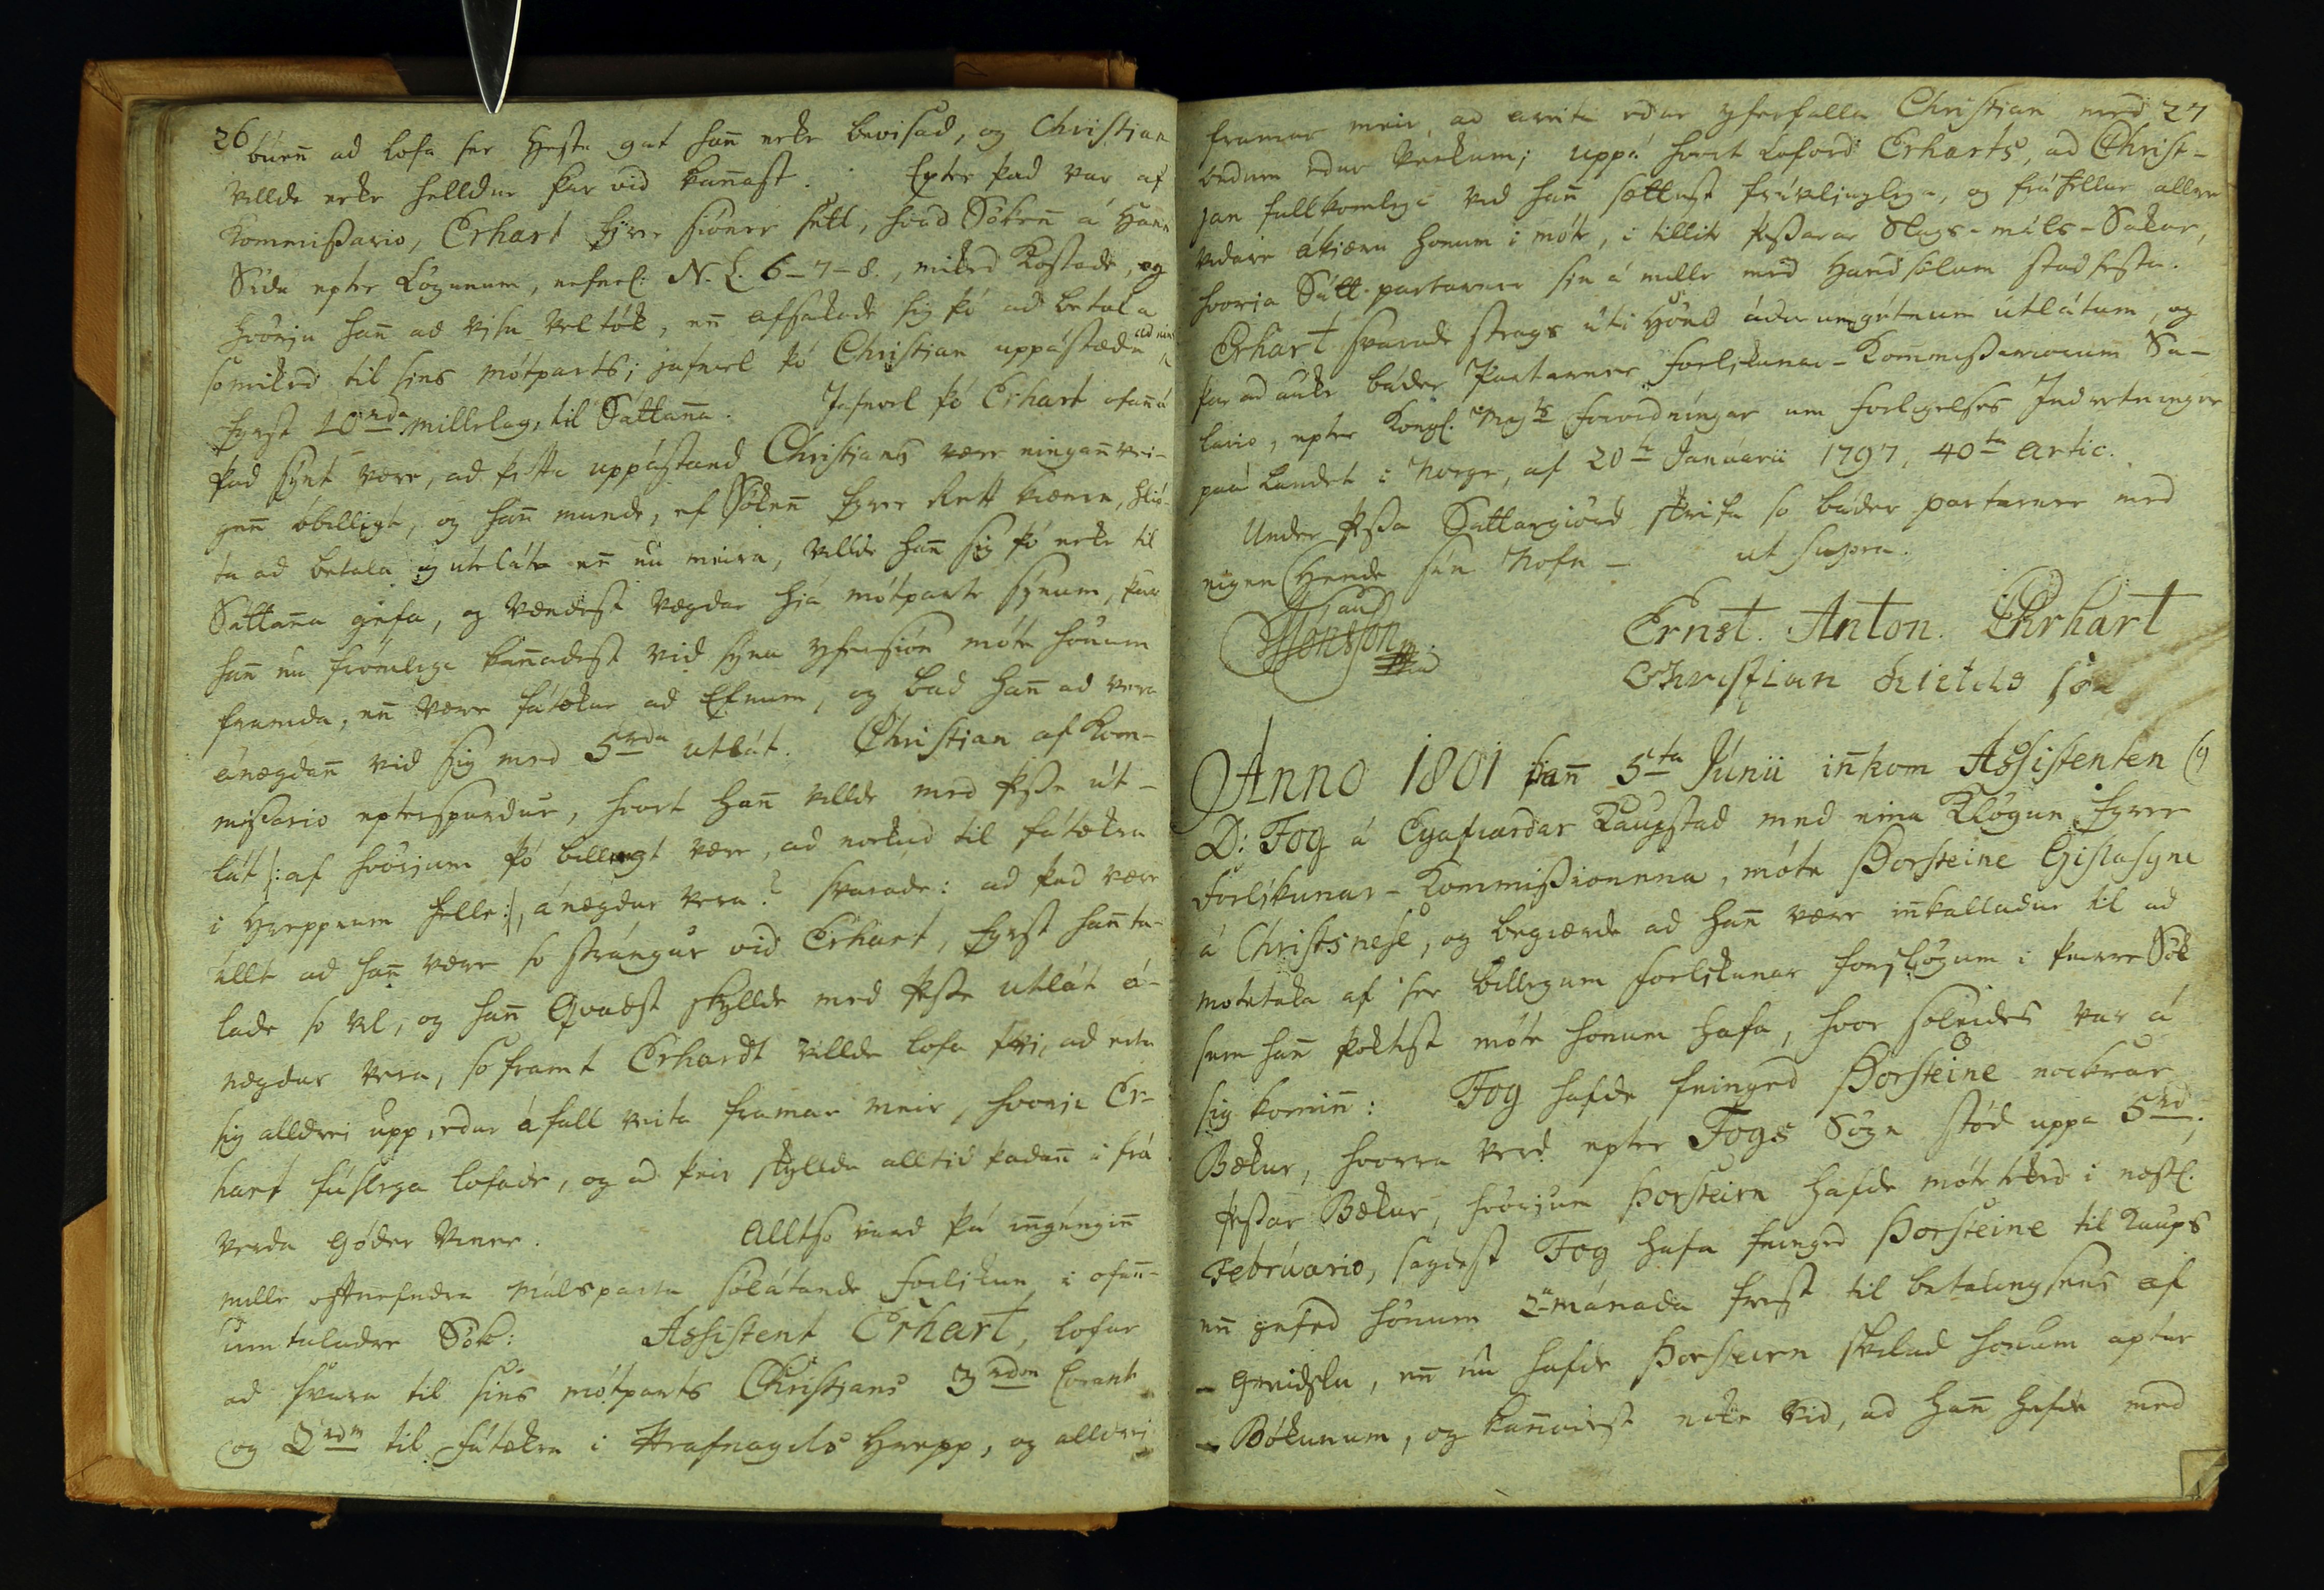 26
búenn ad lofa ser Hesta gat hann ecke bevisad, og Christian
villde ecke helldur þar vid kannast. Epter þad var af
Kommissario, Erhart fyrer siöner sett, hvad Söken á Hans
Sidu epter Lögunum, nefnel: N. L. 6-7-8., miked Kostade, og
hvöria hann ad visu vel tók, enn afsakade sig þó ad betala
so miked til sins mótparts; jafnvel þó Christian uppástæde
fyrst 10 rda millelag, til Sáttanna. Jafnvel þó Erhart
þad synt være, ad þetta uppástand Christians være eingannvei-
genn óbilligt, og hann munde, ef Sökenn fyrer Rett kiæme, hlió-
ta ad betala og utláta enn nu meira, villde hann sig þó ecke til
Sáttanna gefa, og vændest vægdar hiá mótparte synum, þar
hann nu frómlega kannadest vid syna yfersión móte honum
framda, enn være fátækur ad Efnum, og bad hann ad vera
ánægdann vid sig med 5 rda utlát. Christian af Kom-
missario epterspurdur, hvort hann villde med þesse út-
lát /: af hvörjum þó billegt være, ad nockud til fátækra
i Hreppnum felle :/, ánægdur vera? svarade: ad þad være
illt ad hann være so strángur vid Erhart, fyrst hann ta-
lade so vel, og hann Qvadst skyllde med þesse utlát á-
nægdur vera, so framt Erhardt villde lofa því, ad
sig alldrei upp, edur áfall veita framar meir, hvöria Er-
hart fúslega lofade, og ad þeir skylldu alltid þadann i frá
verda góder Viner. Alltso vard þá inngénginn
mille optnefndra málsparta sólátande Forlikun i ofann-
umtaladre Sök: Assistent Erhart, lofar
ad svara til sins mótparts Christjans 3 rdm Corant
og 2 rdm til fátækra i Hrafnagils Hrepp, og alldrei
27
framar meir, ad areita edur yferfalla Christian med
ordum edur verkum; uppá hvört Loford Erharts, ad Christ-
jan fullkomlega vid hann sættest frivilluglega, og fráfellur allre
vidare ákiæru honum i móte, i tillite þessarar Slags-máls-Sakar,
hvoria Sátt partarner sin á mille med Handsölum stadfesta.
Erhart svarade strags úti Hönd ádurumgetnum útlátum, og
þar ad auke báder Partarner Forlikunar-Kommissariorum Sa-
lario, epter Kongl. Majts Forordningar um Forligelses Indretninger
paa Landet i Norge, af 20ta Januarii 1797, 40ta Artic.
Under þessa Sattargiörd skrifa so báder partarner med
eigen Hende sin Nofn — ut supra.
Jonsson
Ernst. Anton. Ehrhart
Christian son
Anno 1801 þann 5ta Júnii innkom Assistenten
D: Fog á Eyafiardar Kaupstad med eina Klögun fyrer
Forlikunar-Kommissionena, móte Þorsteine Gislasyne
á Christsnese, og begiærde ad hann være innkalladur til ad
motetaka af ser billegum forlikunar forslögum i þeirre Sök
sem hann þoktist móte honum hafa, hvor soleides var á
sig kominn: Fog hafde feinged Þorsteine nockrar
Bækur, hvorra verd epter Fogs Sögn stód uppa 5 rd;
þessar Bækur, hvörjum Þorsteirn hafde móteteked i næstl.
Februario, sagdest Fog hafa feinged Þorsteine til Kaups
enn gefed honum 2 mánada frest til betalingsens af
greidslu, enn nu hafde Þorsteirn skilad honum aptur
Bókunum, og kannadest ecke vid, ad hann hefde med